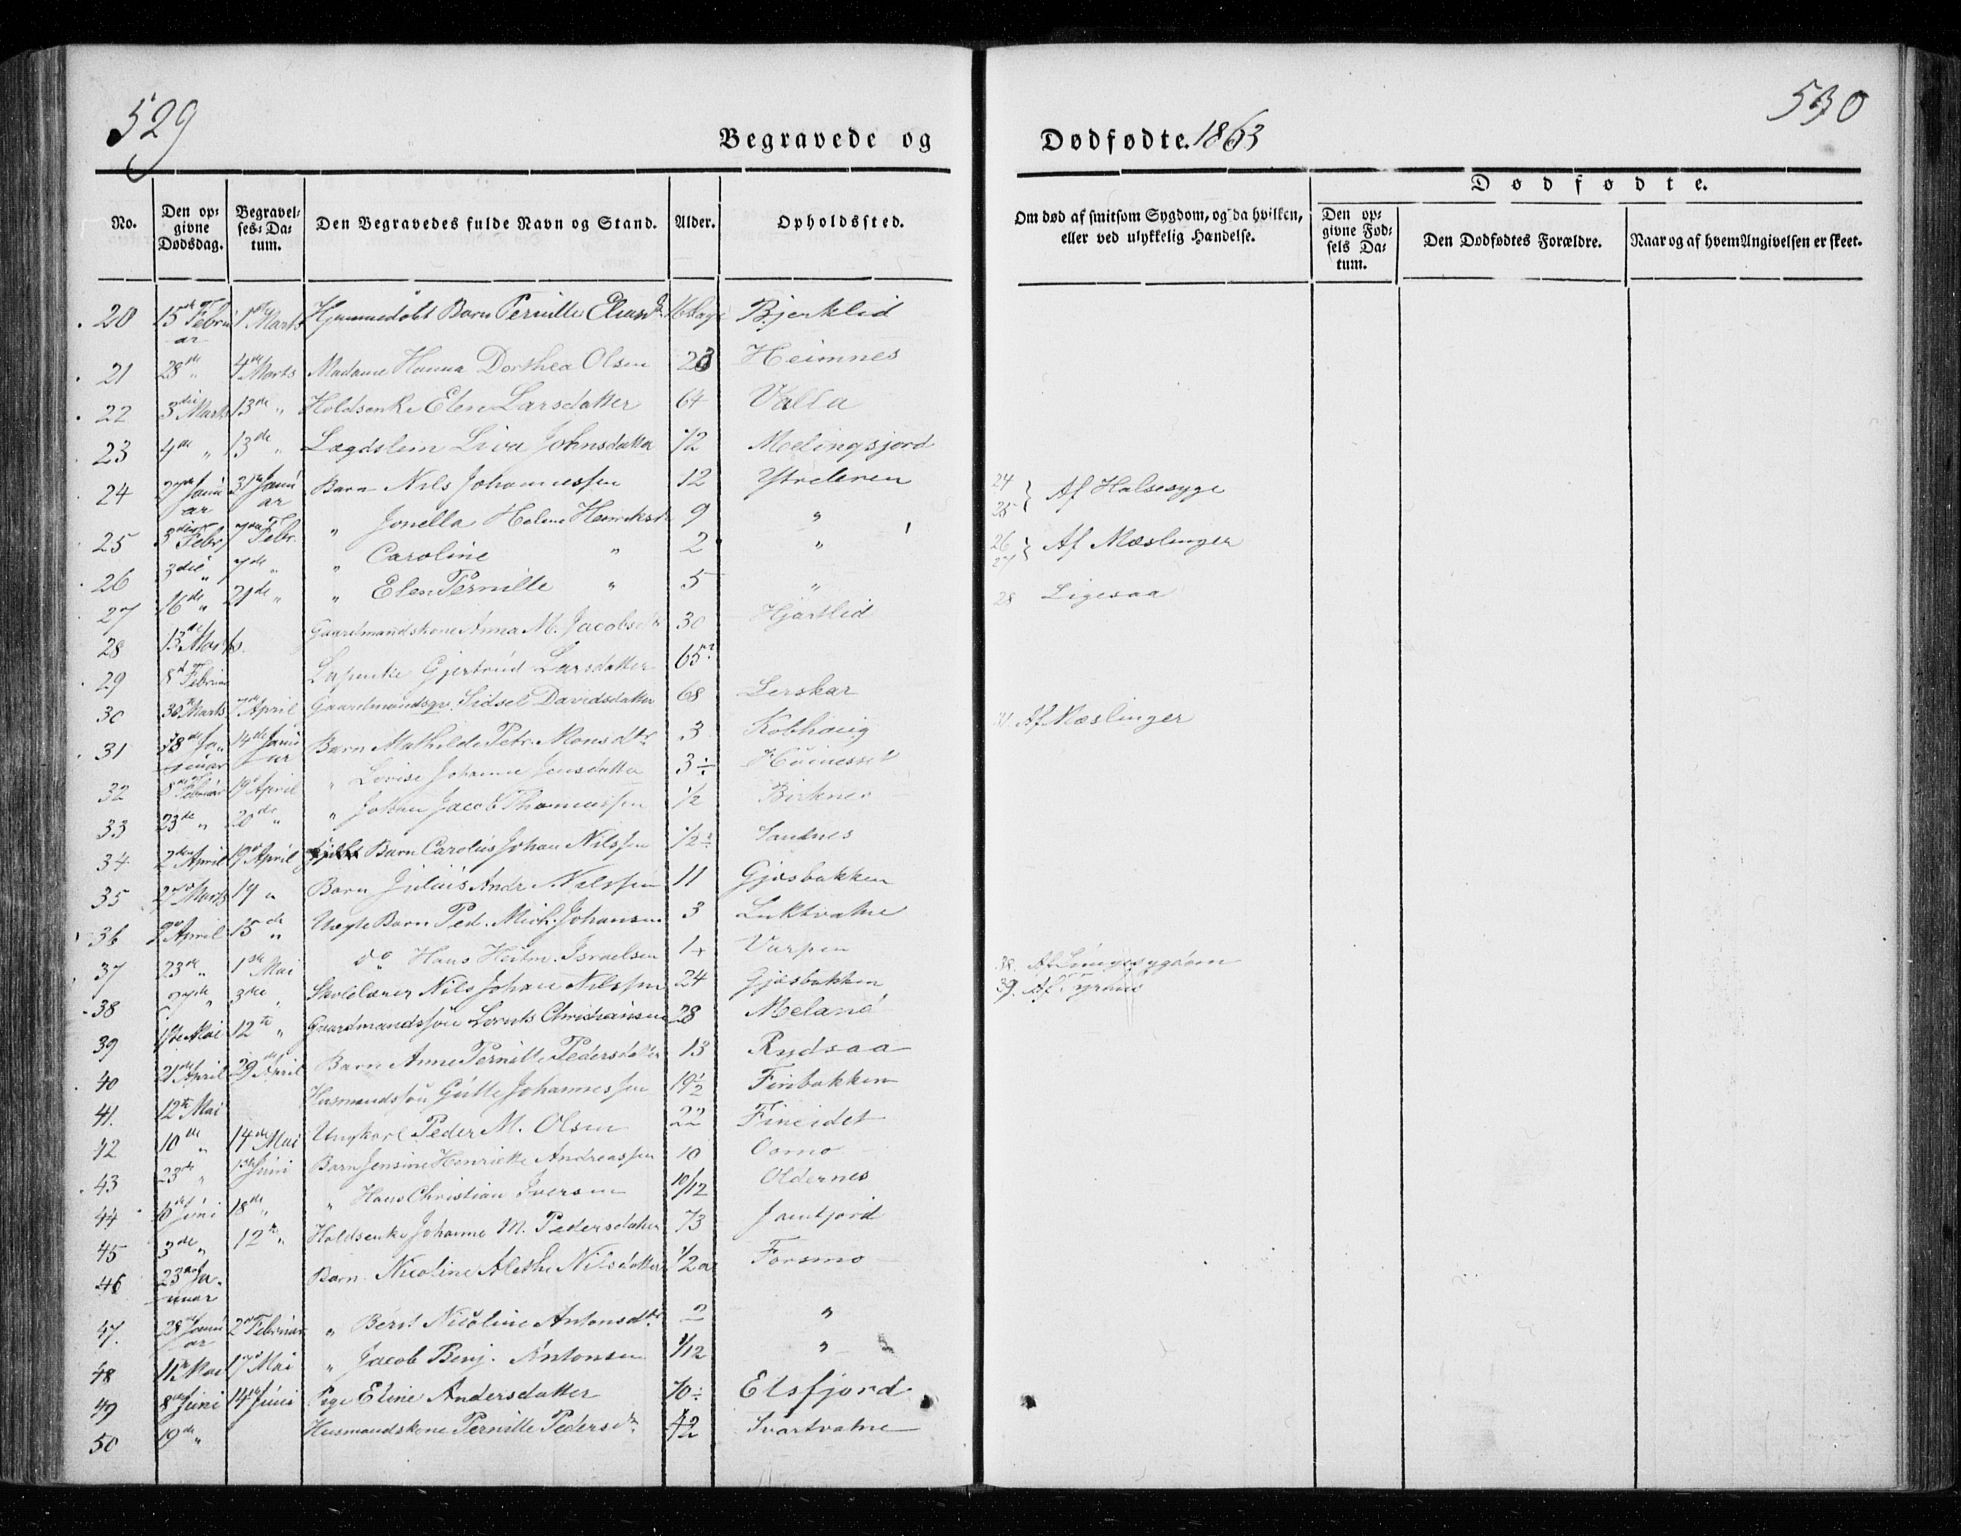 529
530
Begravede og
Dødfødte. 1863
No.
Den opgivne Dødsdag.
Begravelses-Datum.
Den Begravedes fulde Navn og Stand.
Alder.
Opholdssted.
Om død af smitsom Sygdom, og da hvilken, eller ved ulykkelig Hændelse.
Dødfødte.
Den opgivne Fødsels Datum.
Den Dødfødtes Forældre.
Naar og af hvem Angivelsen er skeet.
20 15de Februar 1ste Marts Hjemmedøbt Barn Pernille 16 Dage Bjerklid
21 28de " 4de Marts Madame Hanna Dorthea Olsen 28 Heimnes
22 3die Marts 13de " Holdsenke Elen Larsdatter 64 Valla
23 4de " 13de " Lægdslem Liva Johnsdatter 72 Meelingsjord
24 Januar 31te Januar Barn Nils Johannessen 12 Ytreleren
25 3die Febr 7de Febr. " Jonella Helene 9 "
26 3die " 7de " " Caroline " 2 "
27 16de " 21de " " Elen Pernille " 5 "
28 13de Marts Gaardmandskone Anna M. Jacobsdtr 30 Hjartlid
29 8de Februar Gjertrud Larsdatter 65
30 30te Marts 7de April Sidsel Davidsdatter 68 Lerskar
31 Januar 14de Januar Barn Mathilde Petr. Monsdtr 3 Kobhaug
32 8de Februar 19de April " Lovise Johanne Jensdatter 3 ÷
33 23de " 20de " " Johan Jacob Thomassen 1/2 Birknes
34 2den April 19de April Barn Carolius Johan Nilssen 1/2 ÷ Sandnes
35 Marts 19 " Barn Julius Andr. Nilssen 11 Gjøsbakken
36 April 15de " Uægte Barn Ped. Mich. Johansen 3 Luktvatne
37 23de " 1ste Mai do Hans Heitm. Israelsen 1 Varpen
38 " 3die " Skolelærer Nils Johan Nilssen 24 Gjøsbakken
39 Mai 12te " Gaardmandssøn Lornts Christiansen 28
40 21de April 29de April Barn Anne Pernille Pedersdatter 13 Rydsaa
41. 12te Mai Husmandssøn Gutte Johannessen 19 1/2 Finbakken
42 10de " 14de Mai Ungkarl Peder M. Olsen 22 Fineidet
43 23de " Juni Barn Jensine Henrikke Andreassen 10 Oomo
44 6te Juni 18de " " Hans Christian Iversen 10/12 Oldernes
45 3de " 12te " Holdsenke Johanne M. Pedersdatter 73
46 23de Januar Barn Nicoline Alethe Nilsdatter 1/2 Forsmo
47. 28de Januar 2den Februar " Berit Nicoline Antonsdtr 2 "
48 11te Mai 17de Mai " Jacob Benj. Antonsen 1/12 "
49 8de Juni 14de Juni Pige Eline Andersdatter 70 ÷ Elsfjord
50 19de " Husmandskone Pernille Pedersdtr 42 Svartvatne
24
25 } Af Halsesyge
26
27 } Af Mæslinger
28 Ligesaa
31 Af Mæslinger
38. Af
39. Af